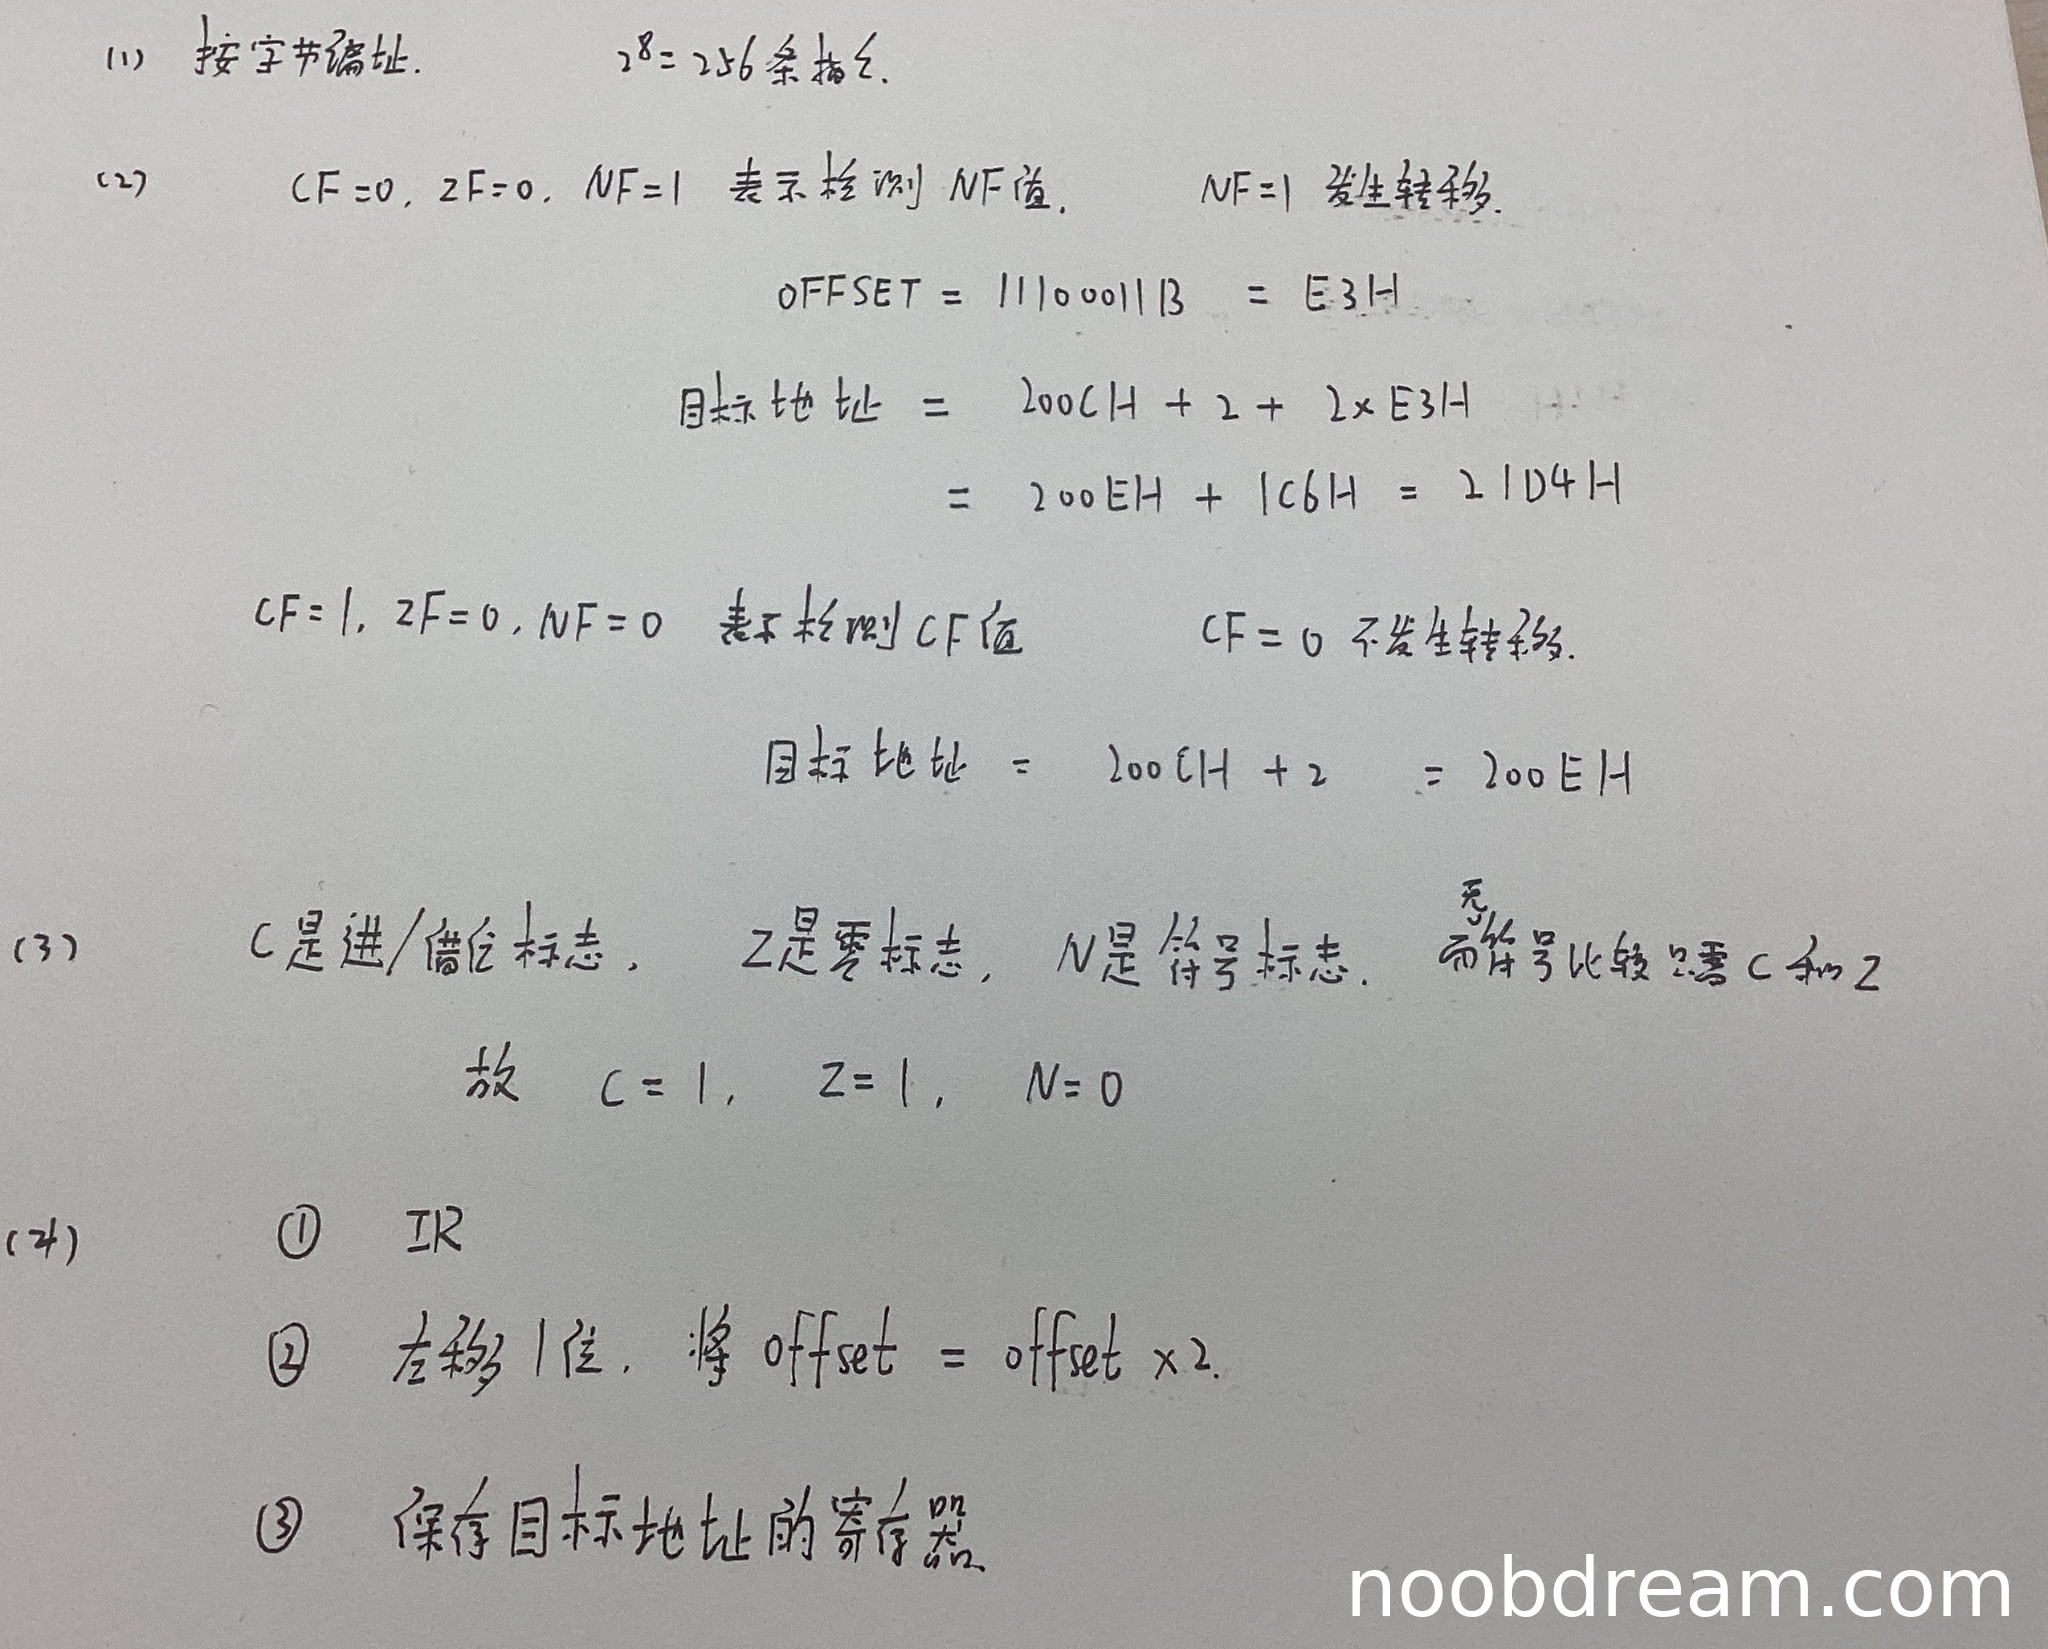 (1) 按字节编址. 2⁸=256条指令.
(2) CF=0, ZF=0, NF=1 表示检测 NF值. NF=1 发生转移.
OFFSET = 11100011B = E3H
目标地址 = 200CH + 2 + 2×E3H
= 200EH + 1C6H = 21D4H
CF=1, ZF=0, NF=0 表示检测CF值 CF=0 不发生转移.
目标地址 = 200CH + 2 = 200EH
(3) C是进/借位标志, Z是零标志, N是符号标志. 而无符号比较只需C和Z
故 C=1, Z=1, N=0
(4) ① IR
② 左移1位, 将 offset = offset ×2.
③ 保存目标地址的寄存器
noobdream.com